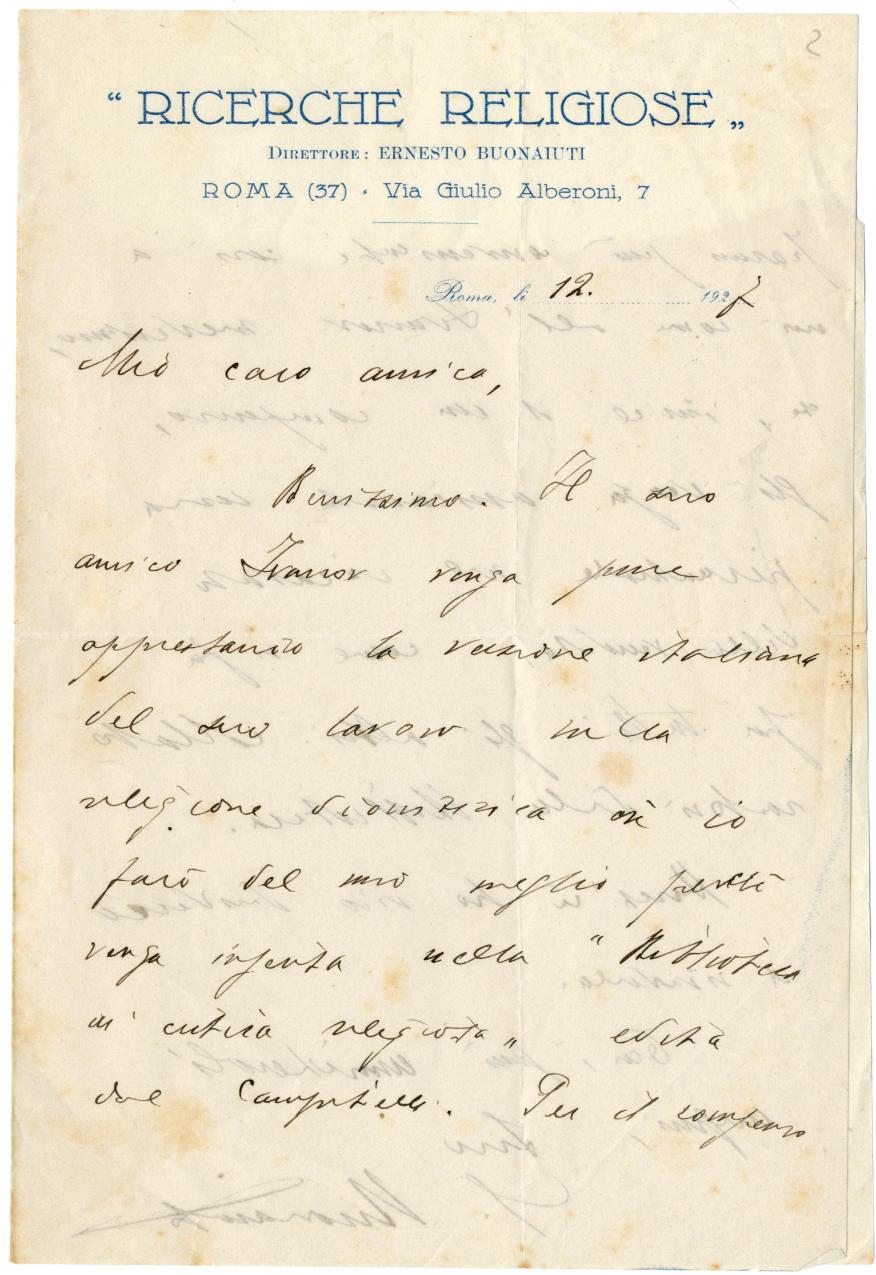 " RICERCHE RELIGIOSE „
DIRETTORE: ERNESTO BUONAIUTI
ROMA (37) · Via Giulio Alberoni, 7
Roma, li 12. 1927
Mio caro amico,
Benissimo. Il suo
amico Ivanov venga pure
apprestando la versione italiana
del suo lavoro sulla
religione dionisiaca ed io
farò del mio meglio perché
venga inserita nella " Biblioteca
di critica religiosa „ edita
dal Campitelli. Per il compenso